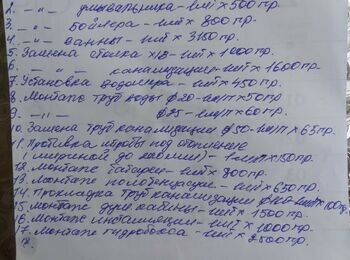 2. — „ — умывальника – 1шт х 500 гр.
3. — „ — бойлера – 1шт х 800 гр.
4. — „ — ванны – 1шт х 3150 гр.
5. Замена стояка х/в – 1шт х 1000 гр.
6. — „ — канализации – 1шт х 1600 гр
7. Установка водомера – 1шт х 450 гр.
8. Монтаж труб воды ф20 – 1м/п х 50 гр
9. — „ — ф25 – 1м/п х 60 гр.
10. Замена труб канализации ф50 – 1м/п х 65 гр.
11. Пробивка штроб под отопление
(шириной до 1м/п х 150 гр.
12. Монтаж батареи – 1шт х 800 гр.
13. Монтаж полотенцесуш – 1шт х 650 гр.
14. Прокладка труб канализации х 100 гр.
15. Монтаж душ. кабины – 1шт х 1500 гр.
16. Монтаж инсталляции – 1шт х 1000 гр
17. Монтаж гидробокса – 1шт х 2500 гр.
18.